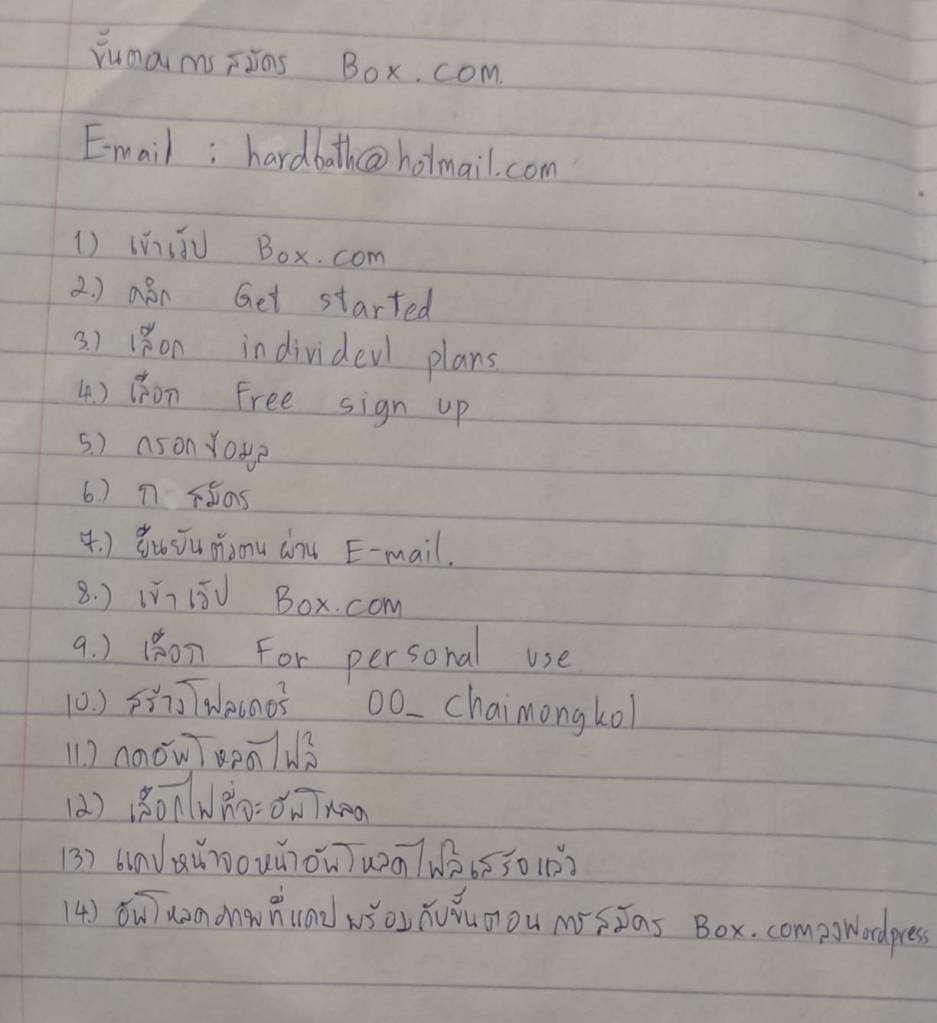 ขั้นตอนการสมัคร Box.com.
E-mail : hardbath@hotmail.com
1.) เข้าเว็ป Box.com
2.) คลิก Get started
3.) เลือก individevl plans.
4.) เลือก Free sign up
5.) กรอกข้อมูล
6.) ก สมัคร
7.) ยืนยันตัวตนผ่าน E-mail.
8.) เข้าเว็ป Box.com
9.) เลือก For personal use
10.) สร้างโฟลเดอร์ 00_Chaimongkol
11.) กดอัพโหลดไฟล์
12) เลือกไฟที่จะอัพโหลด
13) แคปหน้าจอหน้าอัพโหลดไฟล์เสร็จแล้ว
14.) อัพโหลดภาพที่แคปพร้อมกับขั้นตอนการสมัคร Box.comลงWordpress